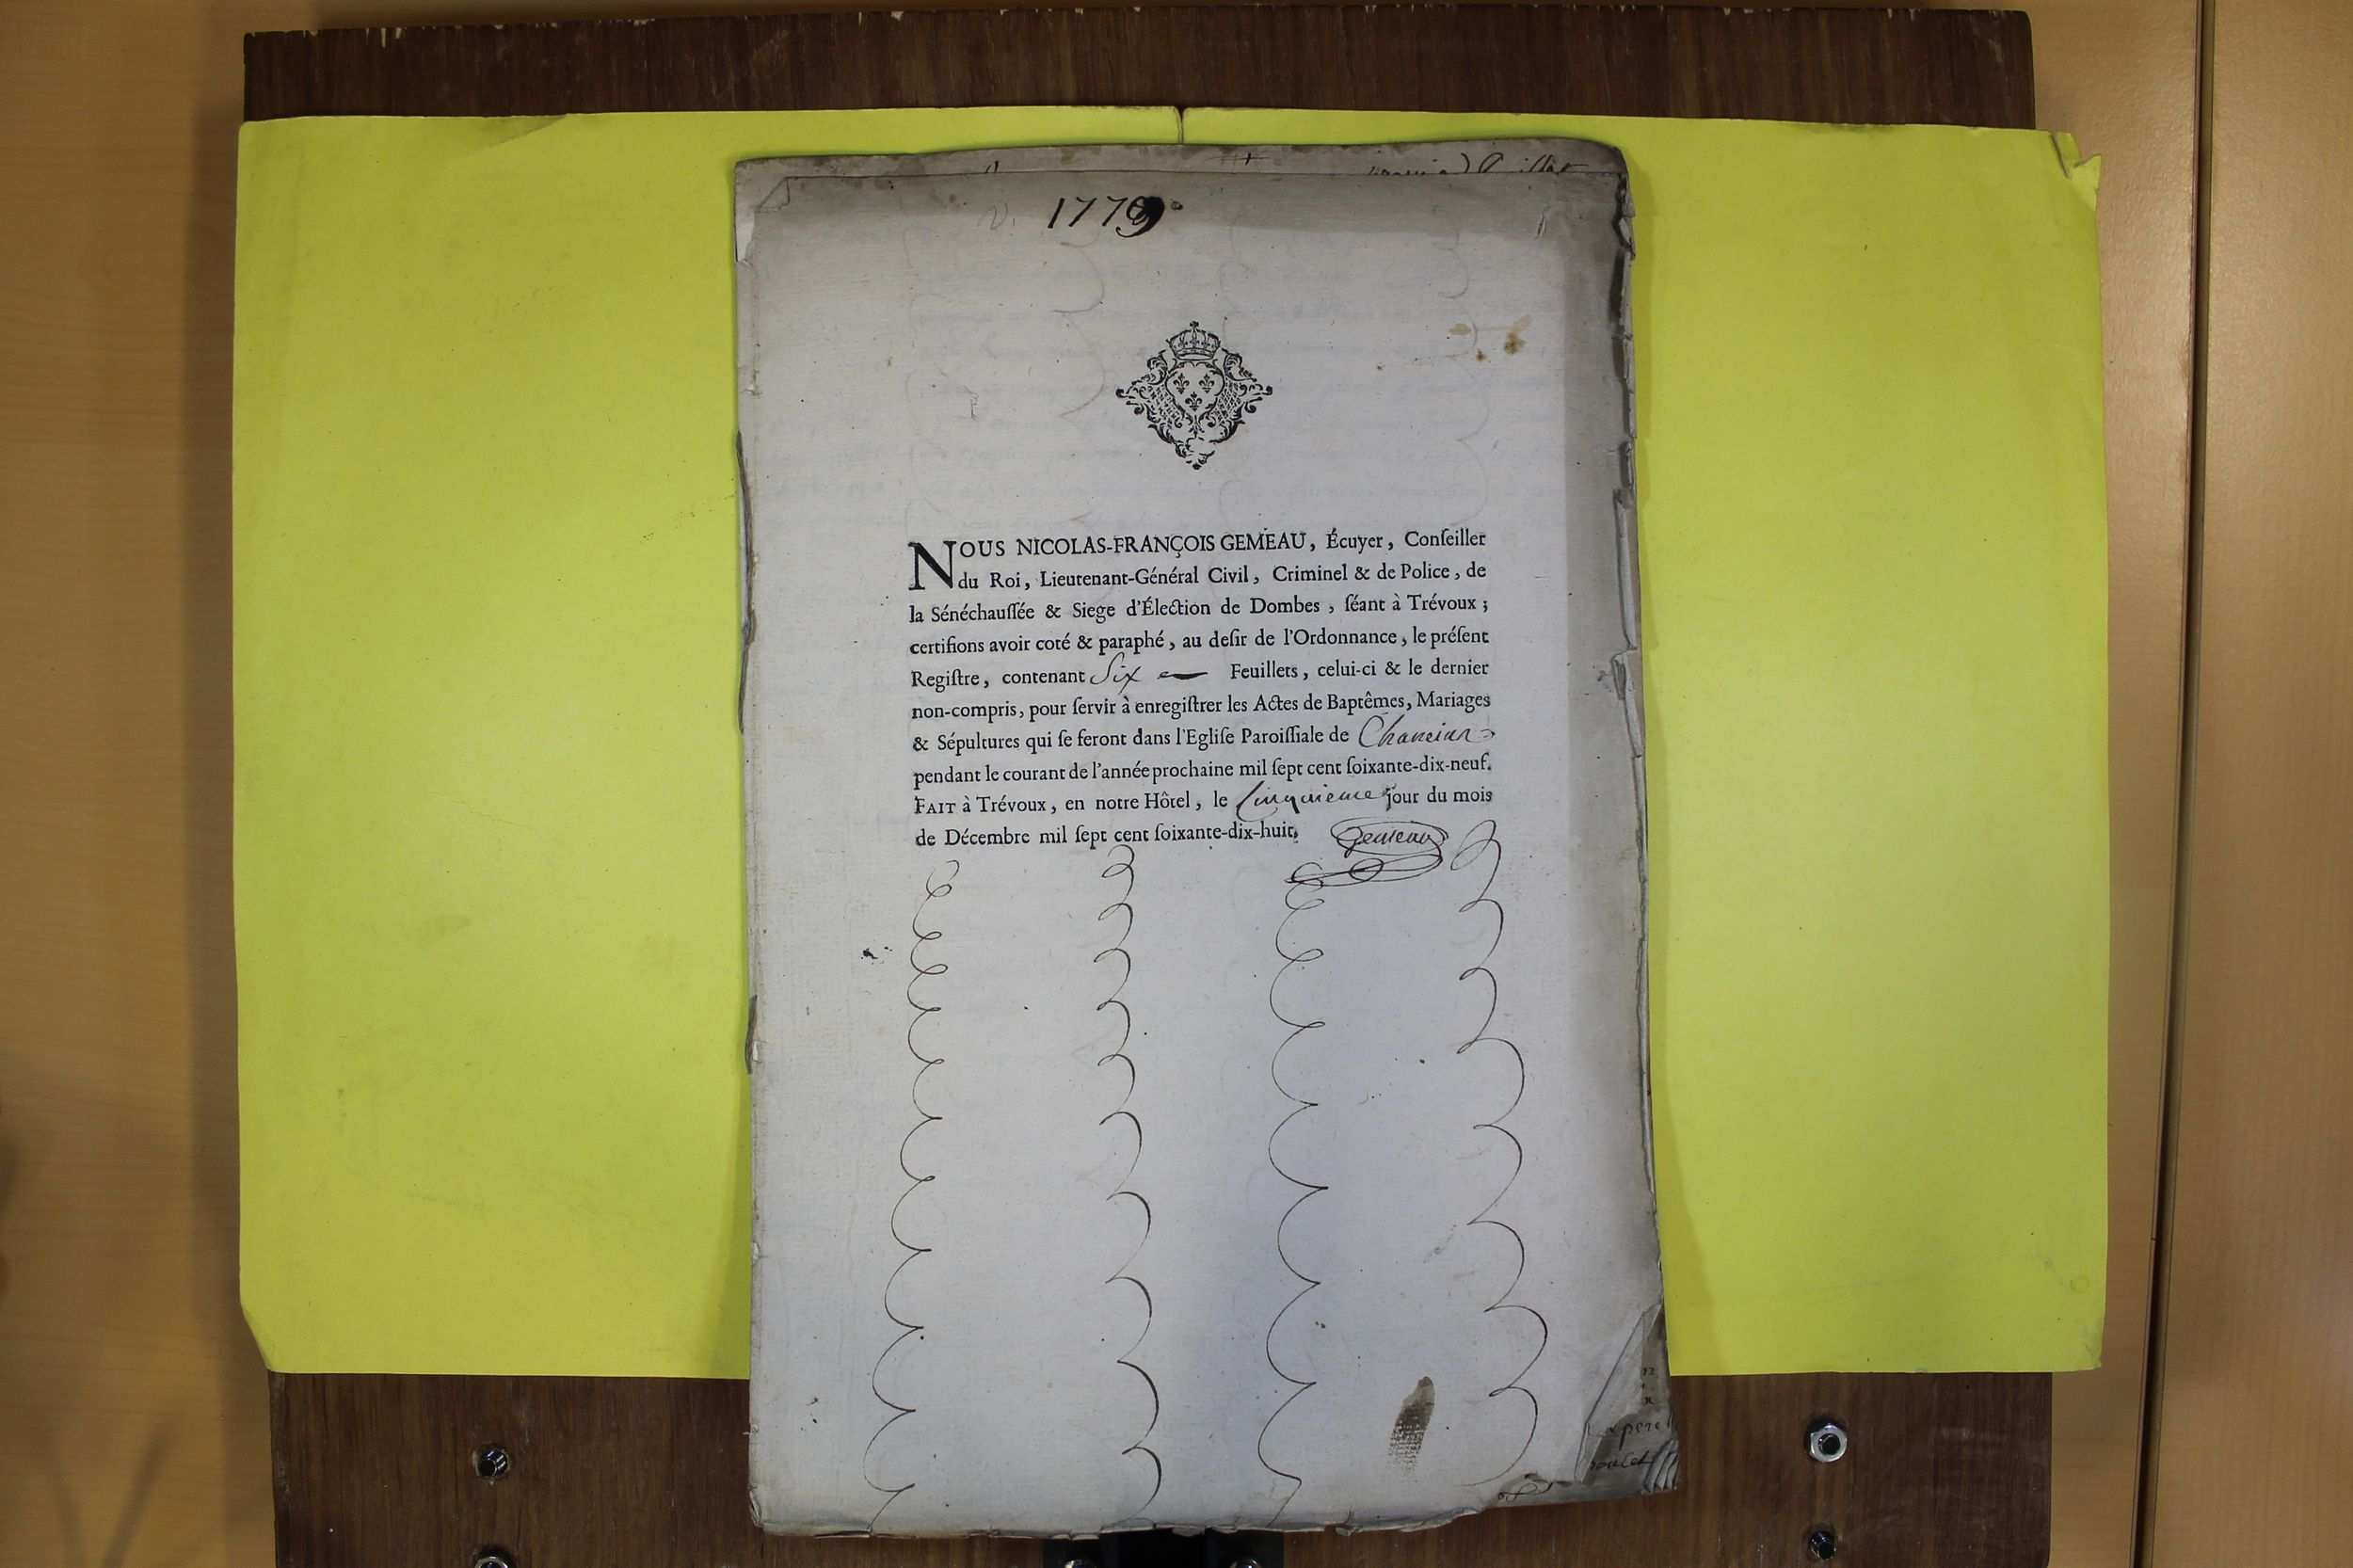 1779
NOUS NICOLAS-FRANÇOIS GEMEAU, Écuyer, Conſeiller
du Roi, Lieutenant-Général Civil, Criminel & de Police, de
la Sénéchauſſée & Siege d'Élection de Dombes, ſéant à Trévoux;
certifions avoir coté & paraphé, au deſir de l'Ordonnance, le préſent
Regiſtre, contenant Six Feuillets, celui-ci & le dernier
non-compris, pour ſervir à enregiſtrer les Actes de Baptêmes, Mariages
& Sépultures qui ſe feront dans l'Egliſe Paroiſſiale de Chaneins
pendant le courant de l'année prochaine mil ſept cent ſoixante-dix-neuf.
FAIT à Trévoux, en notre Hôtel, le Cinquieme jour du mois
de Décembre mil ſept cent ſoixante-dix-huit. Gemeau
pere